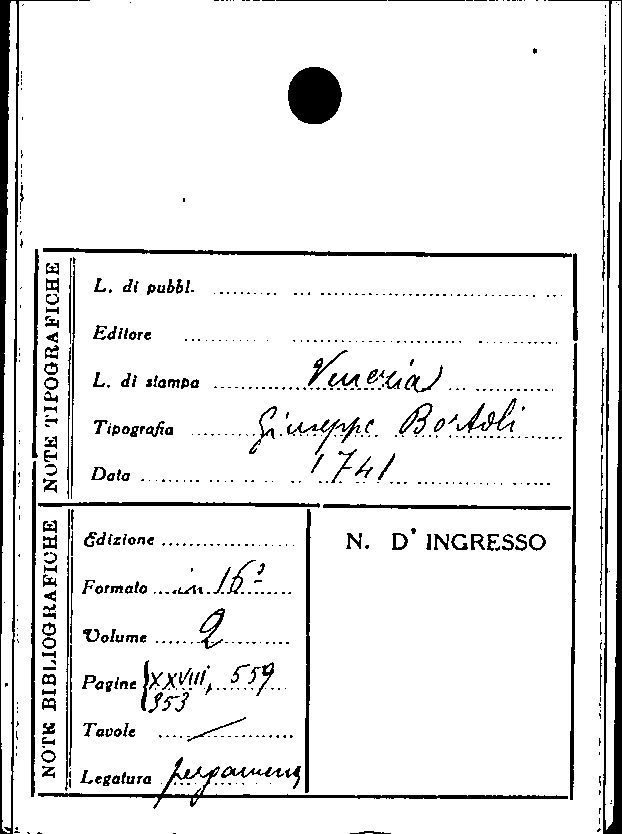 NOTE TIPOGRAFICHE
L. di pubbl.
Editore
L. di stampa Venezia
Tipografia Giuseppe Bortoli
Data 1741
NOTE BIBLIOGRAFICHE
Edizione
Formato in 16º
Volume 2
Pagine XXVIII, 559
353
Tavole /
Legatura pergamena
N. D' INGRESSO